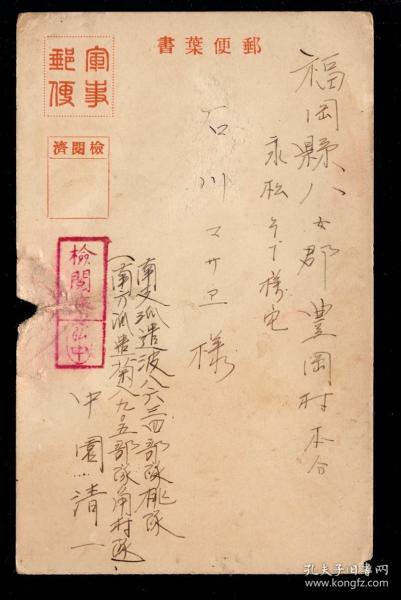 郵便葉書
軍事
郵便
檢閱濟
福岡縣八女郡豊岡村本分
永松 様宅
石川マサヱ様
檢閱濟
南支派遣波八六三四部隊桃隊
(南方派遣菊八九〇五部隊角村隊)
中園清一
孔夫子旧书网
www.kongfz.com